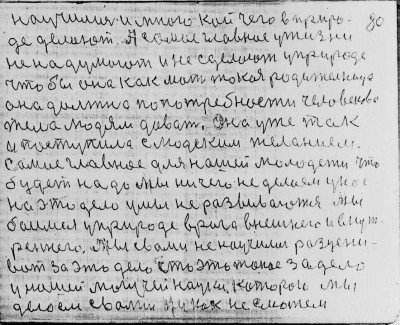 научился и много кой чего в приро- 80
де делают. А самое главное у жизни
не надумают и не сделают у природе
что бы она как мать токая родительница
она должна по потребности человеческо
тела людям давать. Она уже так
и поступила с людским желанием.
Самое главное для нашей молодежи что
будет надо мы ничего не делаем у нас
на это дело умы не развиваются мы
боимся у природе врага внешнего и внут-
реннего. Мы с вами не научили разуени-
вать за это дело что это такое за дело
у нашей могучей науки которою мы
делаем с вами никак не сможем